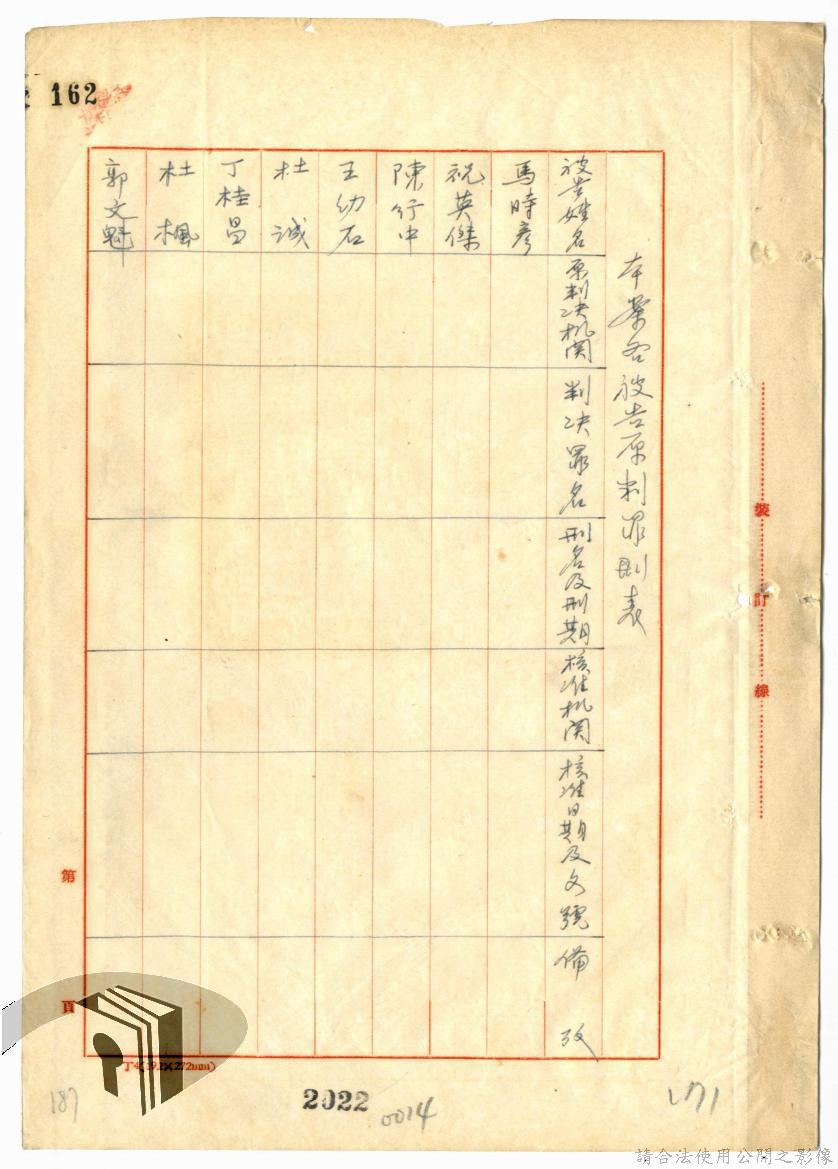 162
本案各被告原判罪刑表
被告姓名 原判決机関 判决罪名 刑名及刑期 核准机関 核准日期及文號 備攷
馬時彥
祝英傑
陳行中
王幼石
杜誠
丁桂昌
杜楓
郭文魁
裝訂線
第 頁
丁4(19.2×272mm)
187
2022
0014
171
請合法使用公開之影像